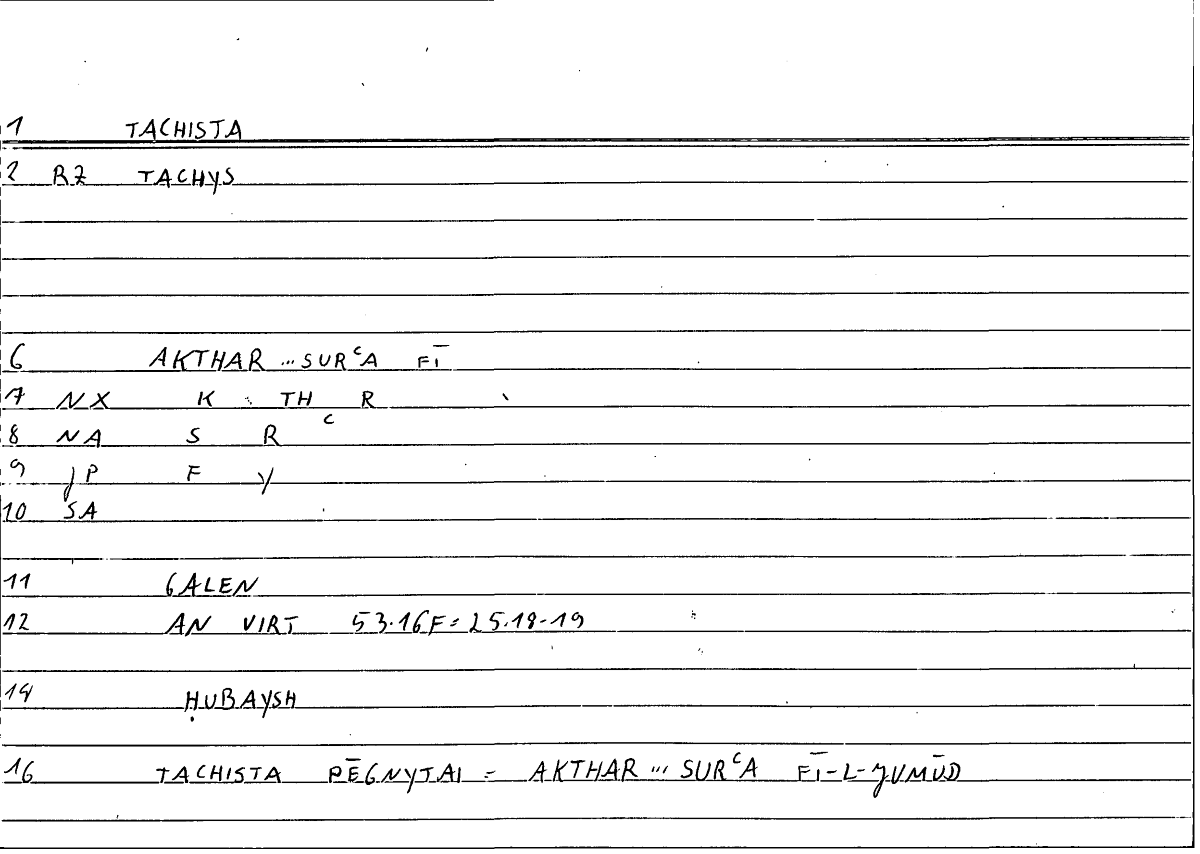 1 TACHISTA
2 RZ TACHYS
6 AKTHAR ... SURᶜA FĪ
7 NX K TH R
8 NA S R ᶜ
9 JP F Y
10 SA
11 GALEN
12 AN VIRT 53.16F = 25.18-19
14 ḤUBAYSH
16 TACHISTA PĒGNYTAI = AKTHAR ... SURᶜA FĪ-L-JUMŪD